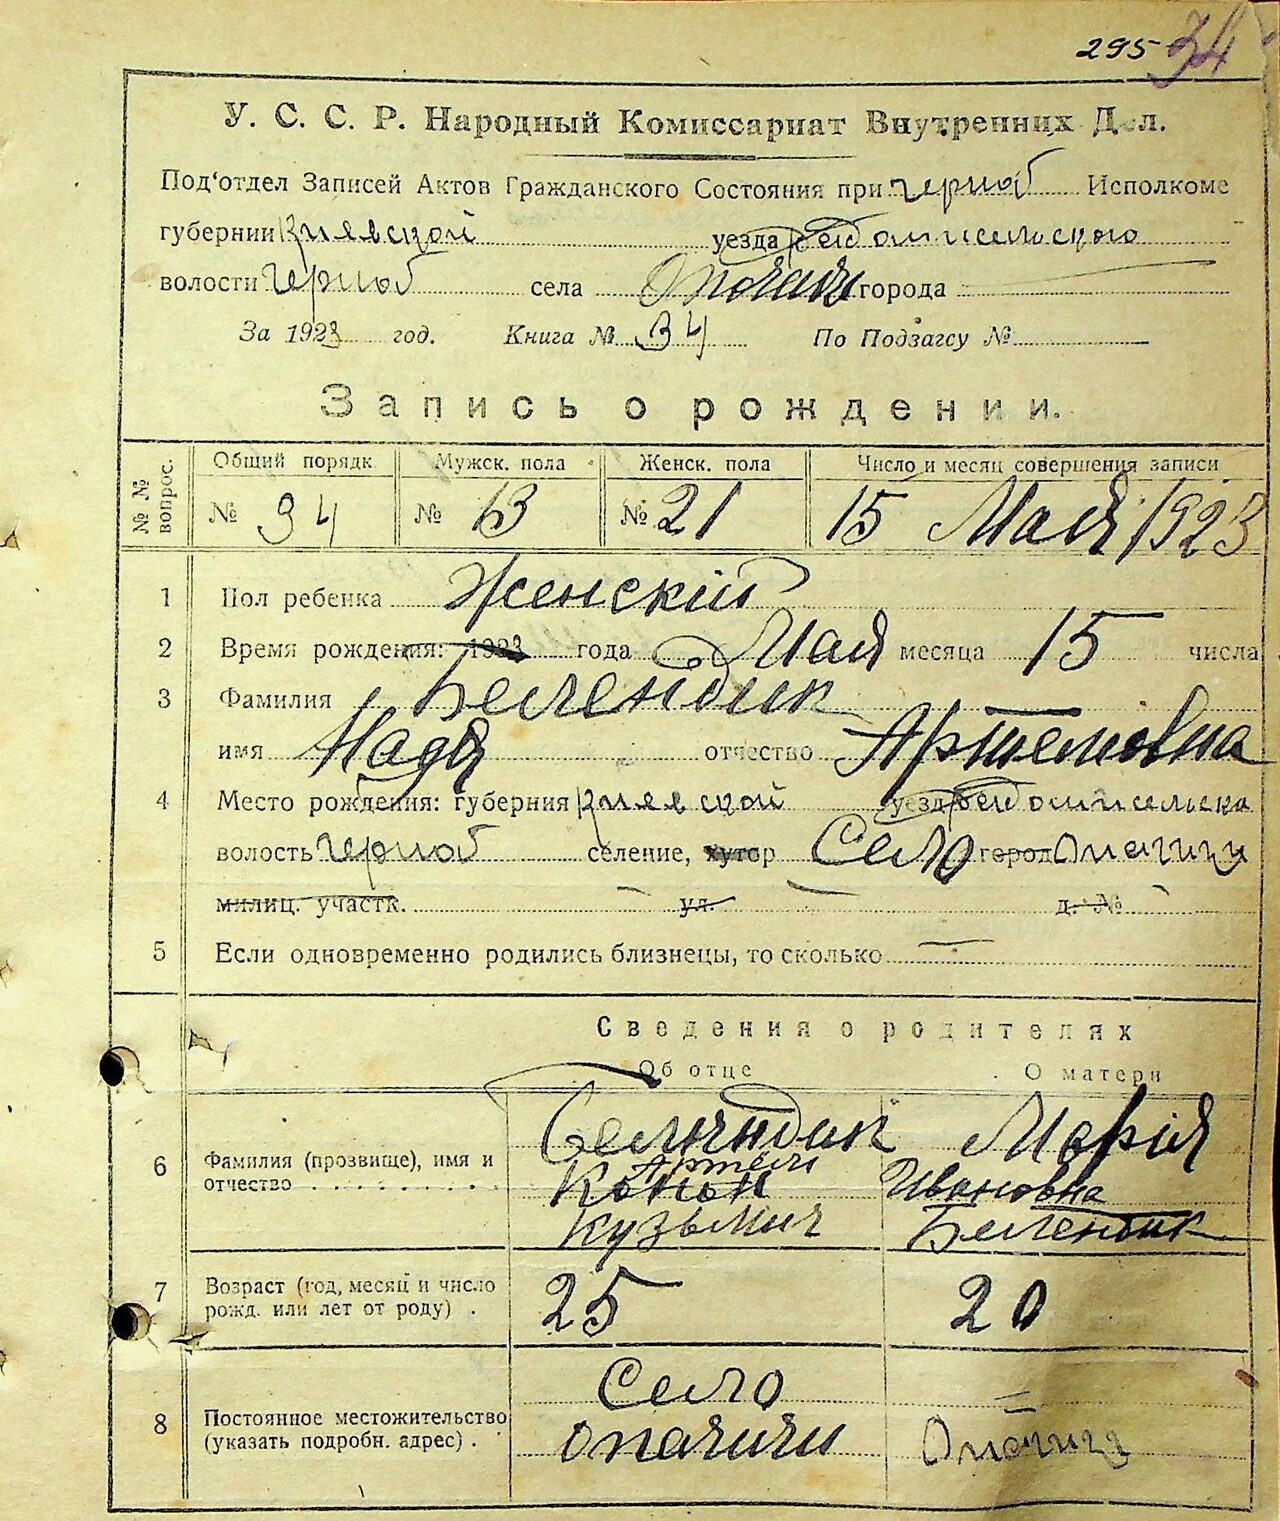 295 34
У. С. С. Р. Народный Комиссариат Внутренних Дел.
Под'отдел Записей Актов Гражданского Состояния при Черноб Исполкоме
губернии Киевской уезда
волости Черноб села Опачичи города
За 1923 год. Книга № 34 По Подзагсу №
Запись о рождении.
№ № вопрос.
Общий порядк Мужск. пола Женск. пола Число и месяц совершения записи
№ 34 № 13 № 21 15 Мая 1923
1 Пол ребенка Женскій
2 Время рождения: 1923 года Мая месяца 15 числа
3 Фамилия Белендик
имя Надя отчество Артемовна
4 Место рождения: губерния Киевской уезд
волость Черноб селение, хутор Село город Опачичи
милиц. участк. ул. д. №
5 Если одновременно родились близнецы, то сколько —
Сведения о родителях
Об отце О матери
6 Фамилия (прозвище), имя и отчество
Белендик Марія
Артем Ивановна
Кузьмич Белендик
7 Возраст (год, месяц и число рожд. или лет от роду) . 25 20
8 Постоянное местожительство (указать подробн. адрес) .
Село
Опачичи Опачичи